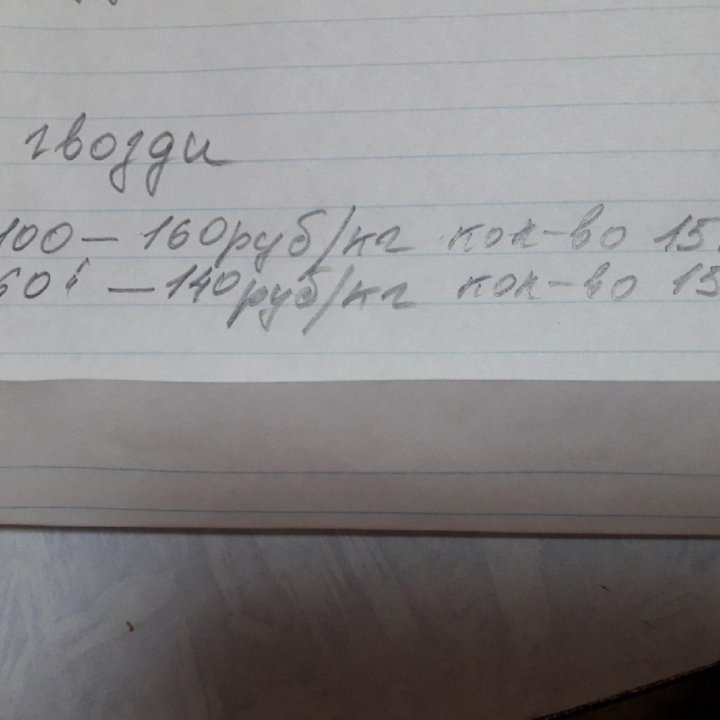 гвозди
100 – 160руб/кг кол-во 15
60 – 140руб/кг кол-во 15